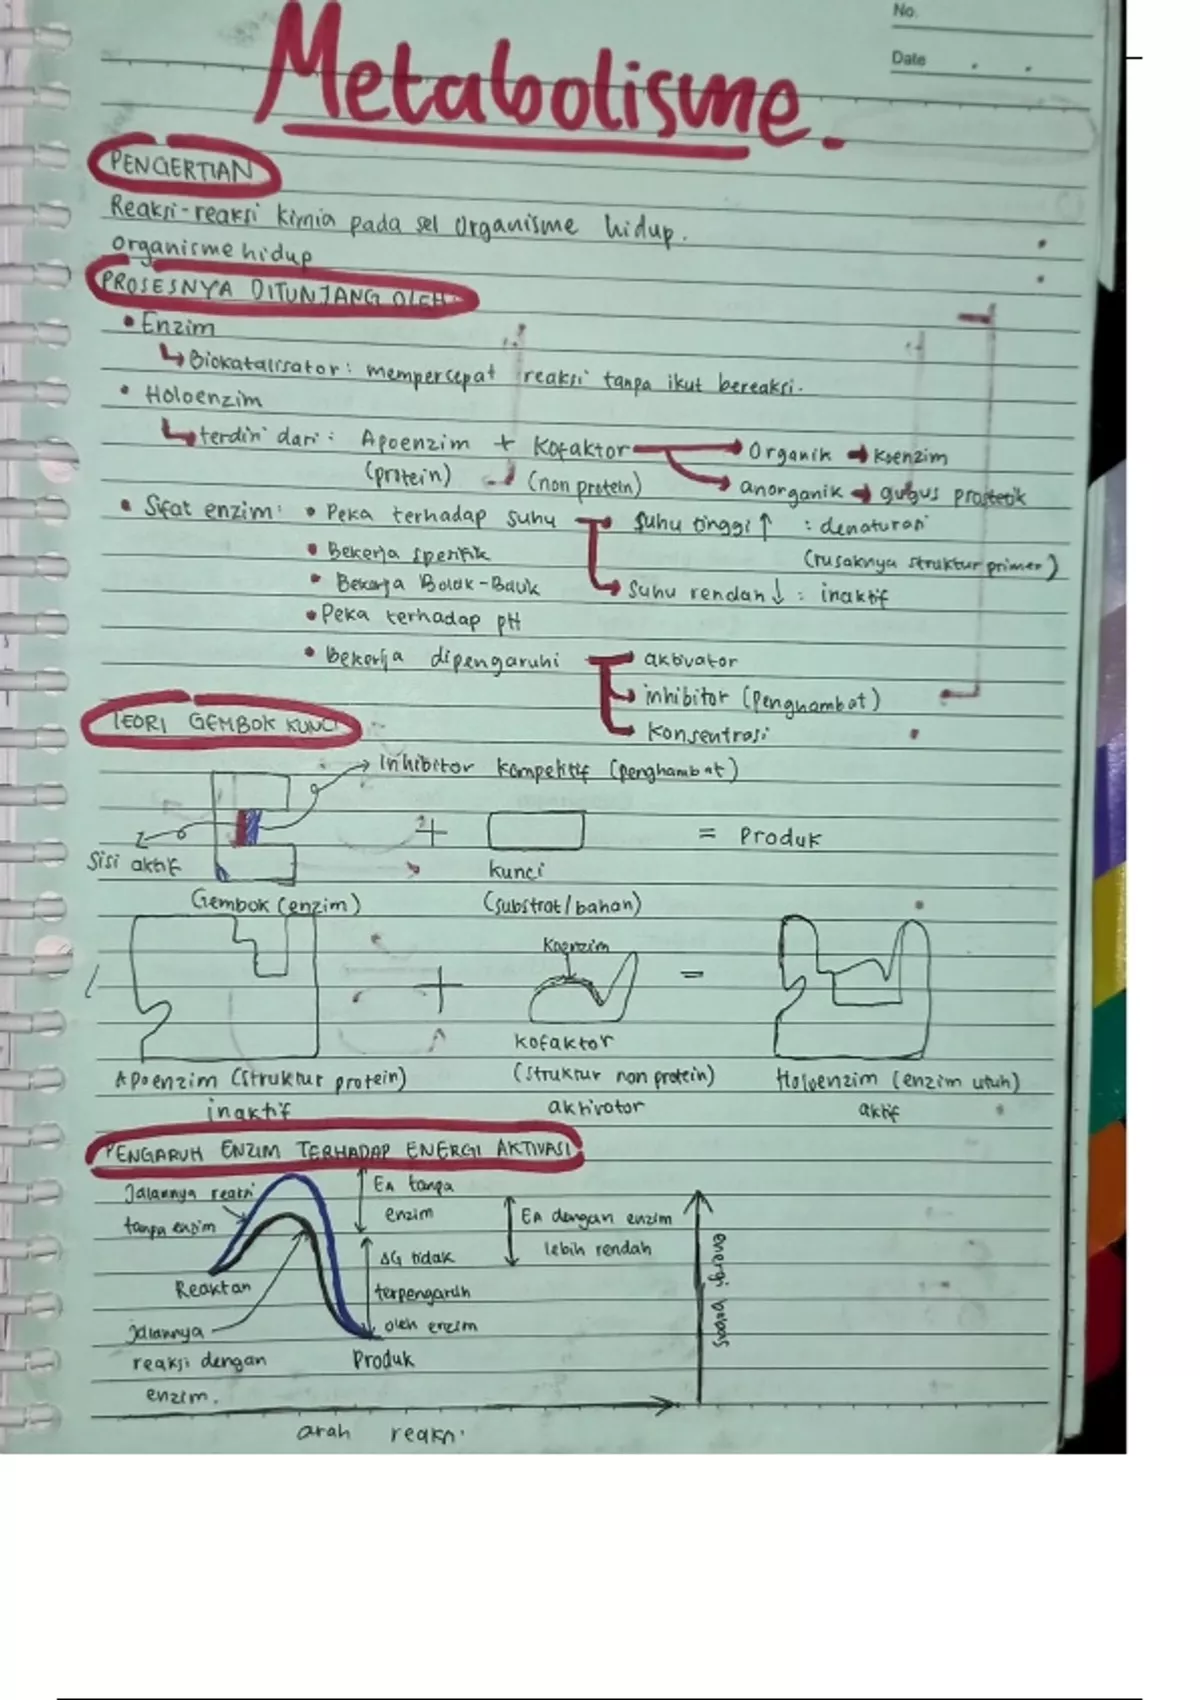 No.
Date
Metabolisme.
PENGERTIAN
Reaksi-reaksi kimia pada sel Organisme hidup.
organisme hidup
PROSESNYA DITUNJANG OLEH
• Enzim
↳ Biokatalisator : mempersepat reaksi tanpa ikut bereaksi.
• Holoenzim
↳ terdiri dari : Apoenzim + Kofaktor → Organik → Koenzim
(protein) (non protein) → anorganik → gugus prostetik
• Sifat enzim : • Peka terhadap suhu → Suhu tinggi ↑ : denaturasi
• Bekerja spesifik (rusaknya struktur primer)
• Bekerja Bolak-Balik → Suhu rendah ↓ : inaktif
• Peka terhadap pH
• Bekerja dipengaruhi → aktivator
→ inhibitor (Penghambat)
→ Konsentrasi
TEORI GEMBOK KUNCI
→ Inhibitor kompetitif (penghambat)
+ = Produk
Sisi aktif kunci
Gembok (enzim) (substrat/bahan)
Koenzim
+ =
kofaktor
Apoenzim (struktur protein) (struktur non protein) Holoenzim (enzim utuh)
inaktif aktivator aktif
PENGARUH ENZIM TERHADAP ENERGI AKTIVASI
Jalannya reaksi EA tanpa
tanpa enzim enzim EA dengan enzim
ΔG tidak lebih rendah
Reaktan terpengaruh
Jalannya oleh enzim
reaksi dengan Produk
enzim.
energi bebas
arah reaksi